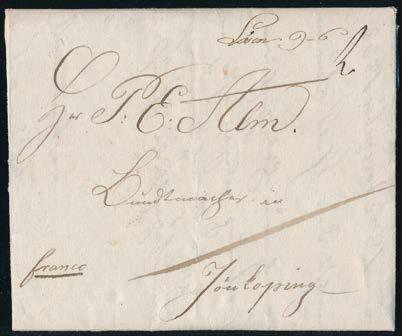 9-6
Hr P. E. Alm.
Bundtmacher in
franco
Jönkoping